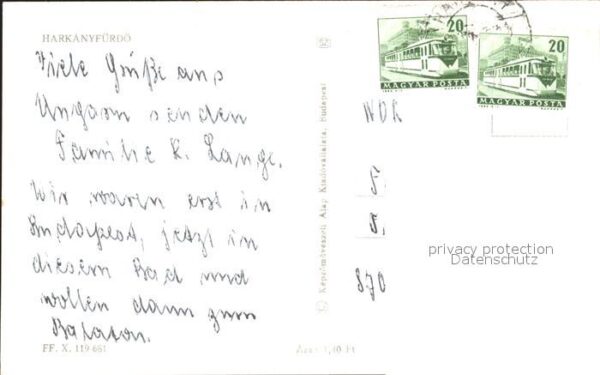 HARKÁNYFÜRDŐ
Viele Grüße aus
Ungarn senden
Familie K. Lange.
Wir waren erst in
Budapest, jetzt in
diesem Bad und
wollen dann zum
Balaton.
FF. X. 119-681
Képzőművészeti Alap Kiadóvállalata, Budapest
20
MAGYAR POSTA
20
MAGYAR POSTA
NDK
870
privacy protection
Datenschutz